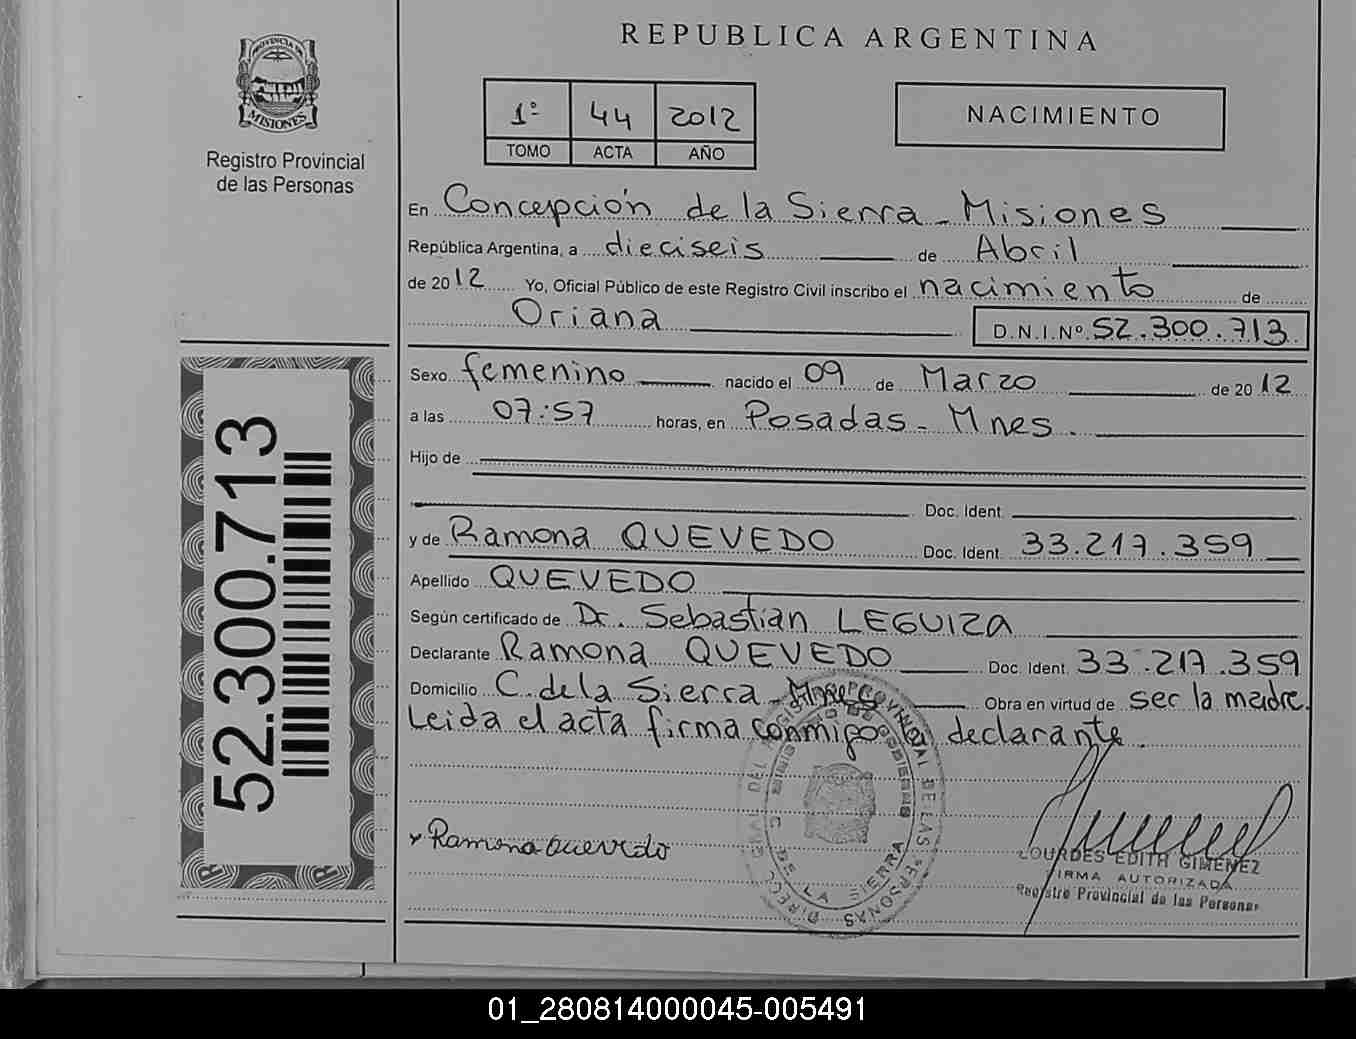 REPUBLICA ARGENTINA
PROVINCIA DE
MISIONES
Registro Provincial
de las Personas
1º 44 2012
TOMO ACTA AÑO
NACIMIENTO
En Concepción de la Sierra - Misiones
República Argentina, a dieciseis de Abril
de 2012 Yo, Oficial Público de este Registro Civil inscribo el nacimiento de
Oriana D.N.I.Nº 52.300.713
Sexo femenino nacido el 09 de Marzo de 2012
a las 07:57 horas, en Posadas - Mnes.
Hijo de
Doc. Ident.
y de Ramona QUEVEDO Doc. Ident. 33.217.359
Apellido QUEVEDO
Según certificado de Dr. Sebastian LEGUIZA
Declarante Ramona QUEVEDO Doc. Ident. 33.217.359
Domicilio C. de la Sierra - Mnes Obra en virtud de ser la madre.
Leida el acta firma conmigo la declarante.
52.300.713
x Ramona Quevedo
REGISTRO PROVINCIAL DE LAS PERSONAS
C. DE LA SIERRA
LOURDES EDITH GIMENEZ
FIRMA AUTORIZADA
Registro Provincial de las Personas
01_280814000045-005491